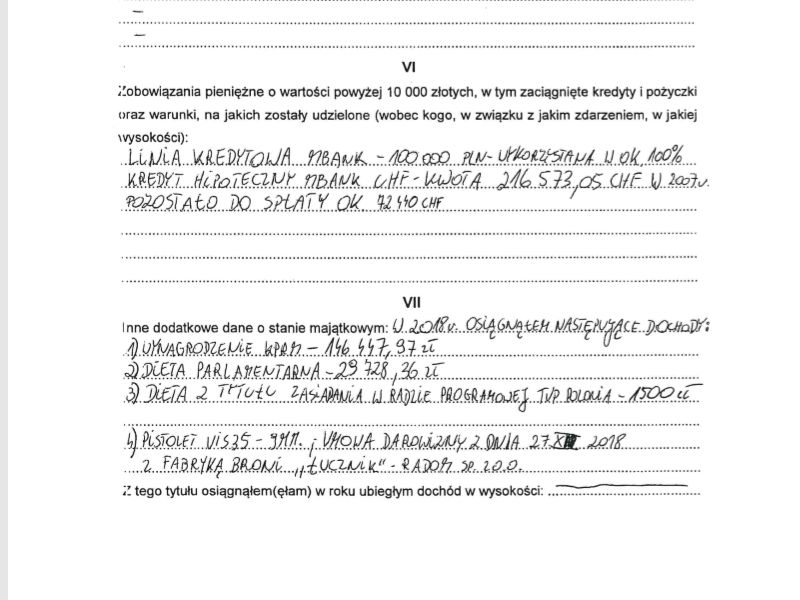 —
—
VI
Zobowiązania pieniężne o wartości powyżej 10 000 złotych, w tym zaciągnięte kredyty i pożyczki
oraz warunki, na jakich zostały udzielone (wobec kogo, w związku z jakim zdarzeniem, w jakiej
wysokości):
LINIA KREDYTOWA MBANK - 100.000 PLN - WYKORZYSTANA W OK. 100%
KREDYT HIPOTECZNY MBANK CHF - KWOTA 216 573,05 CHF W 2007r.
POZOSTAŁO DO SPŁATY OK. 72 440 CHF
VII
Inne dodatkowe dane o stanie majątkowym: W 2018r. OSIĄGNĄŁEM NASTĘPUJĄCE DOCHODY:
1) WYNAGRODZENIE KPRM - 146 447,97 zł
2) DIETA PARLAMENTARNA - 29 728,36 zł
3) DIETA Z TYTUŁU ZASIADANIA W RADZIE PROGRAMOWEJ TVP POLONIA - 1500 zł
4) PISTOLET VIS35 - 9MM. ; UMOWA DAROWIZNY Z DNIA 27. 2018
Z FABRYKĄ BRONI „ŁUCZNIK" - RADOM SP. Z O.O.
Z tego tytułu osiągnąłem(ęłam) w roku ubiegłym dochód w wysokości: